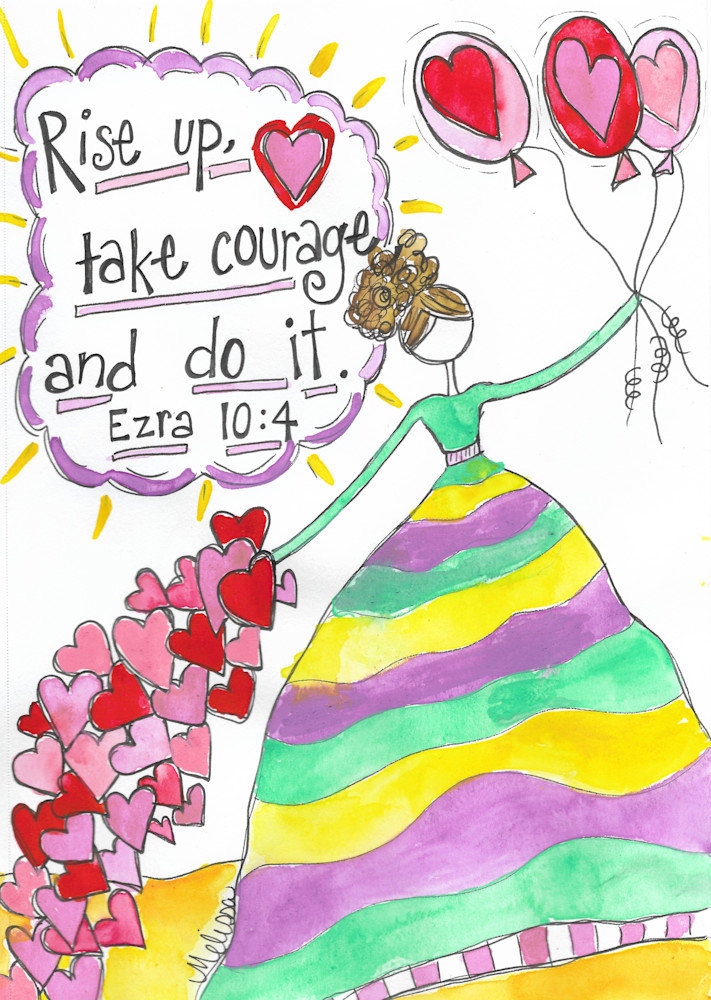 Rise up,
take courage
and do it.
Ezra 10:4
Melissa